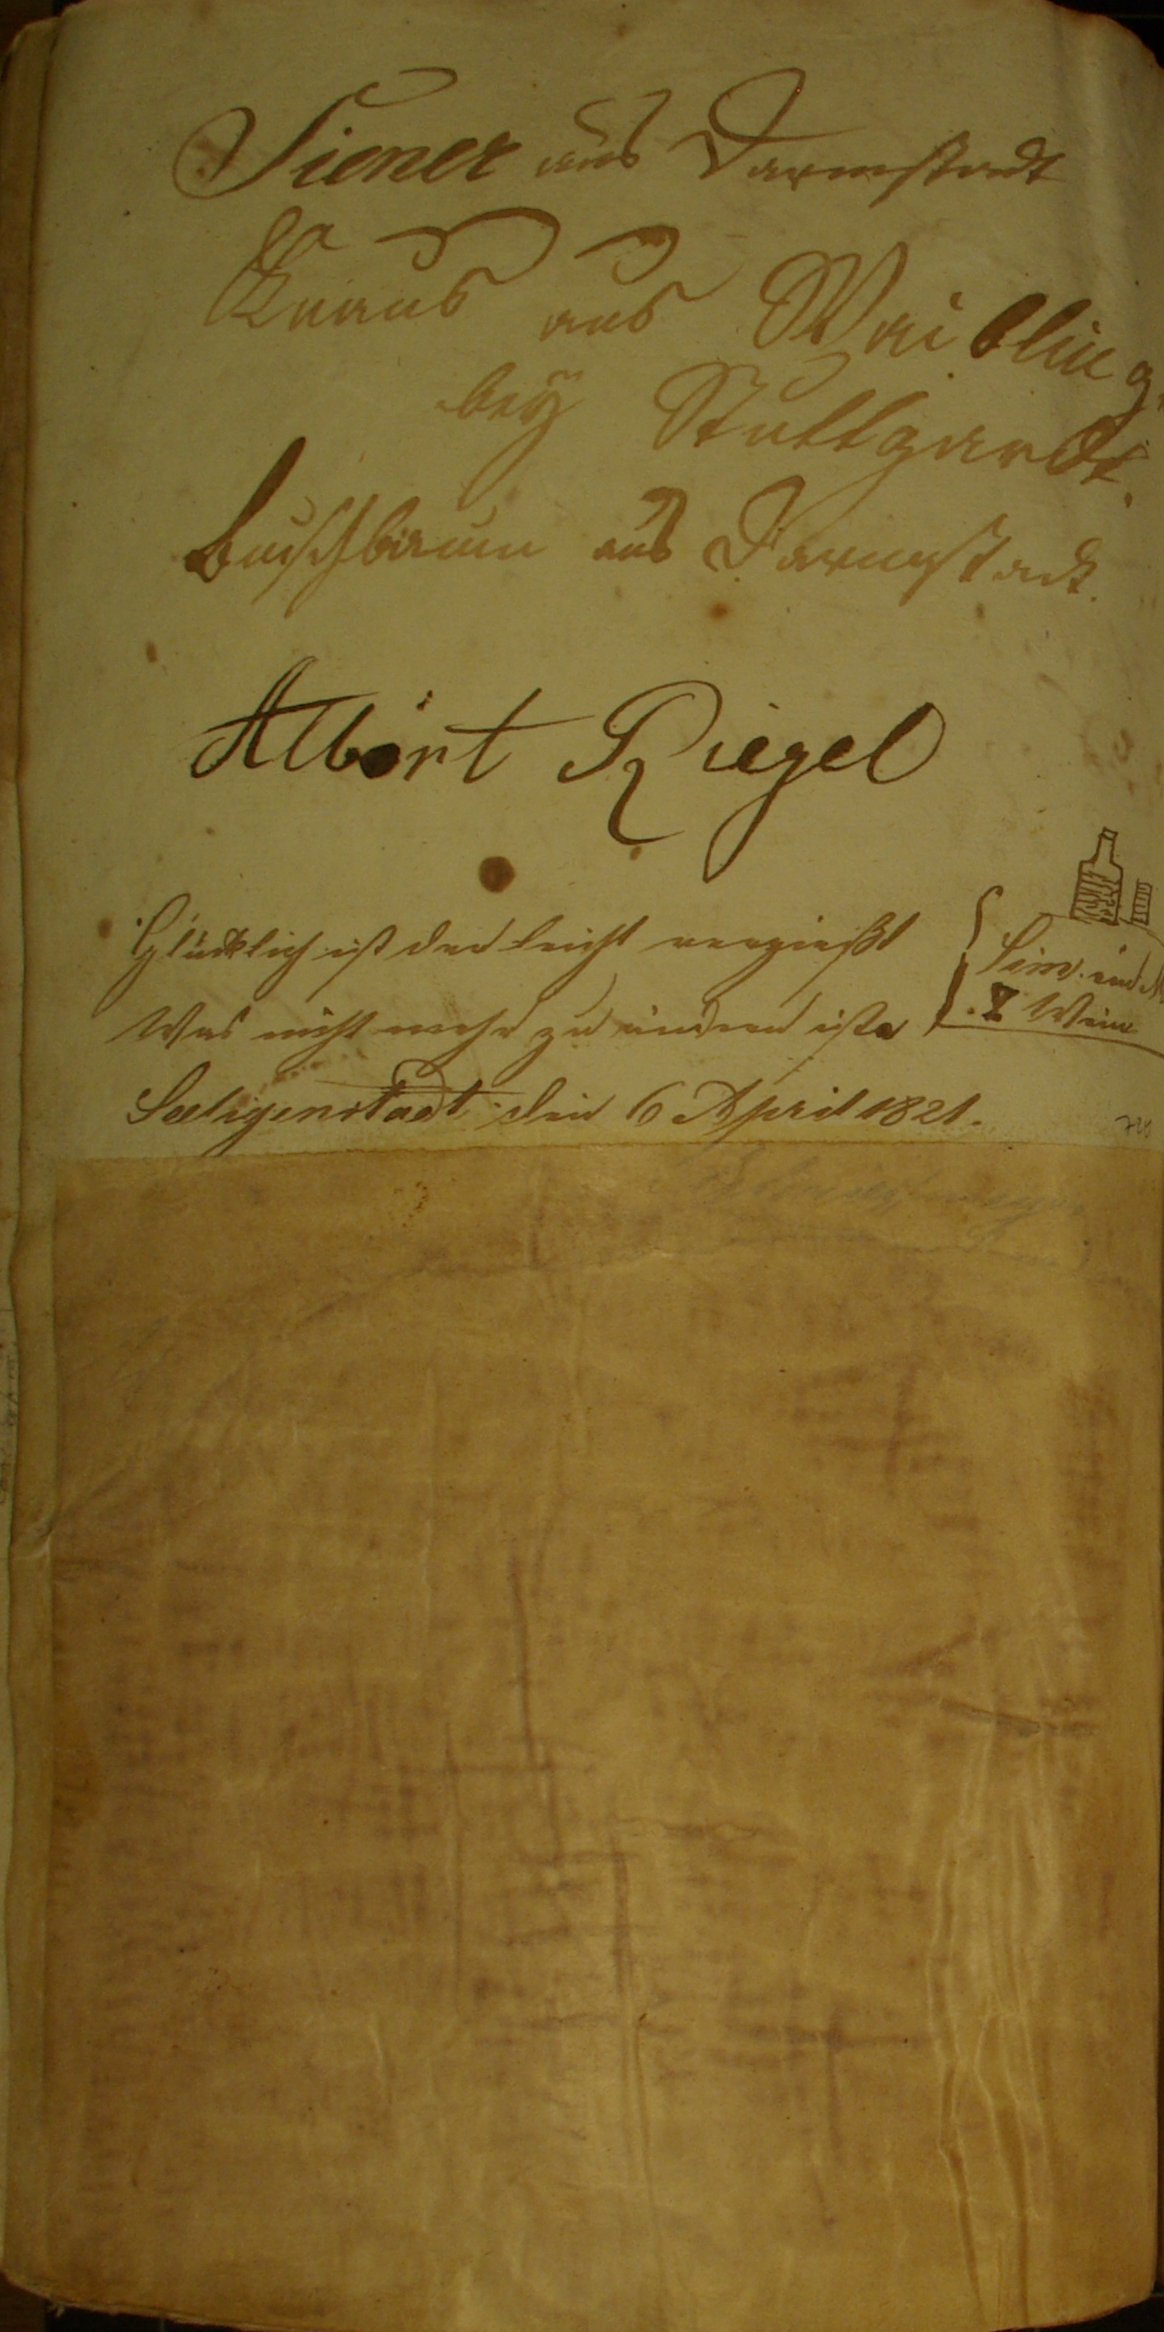 Siener aus Darmstadt
Knaus aus Waibling
bey Stuttgardt.
Buschbaum aus Darmstadt.
Albert Riegel
Glücklich ist der leicht vergießt
Was nicht mehr zu ändern ist
Wein
Seeligenstadt den 6 April 1821.